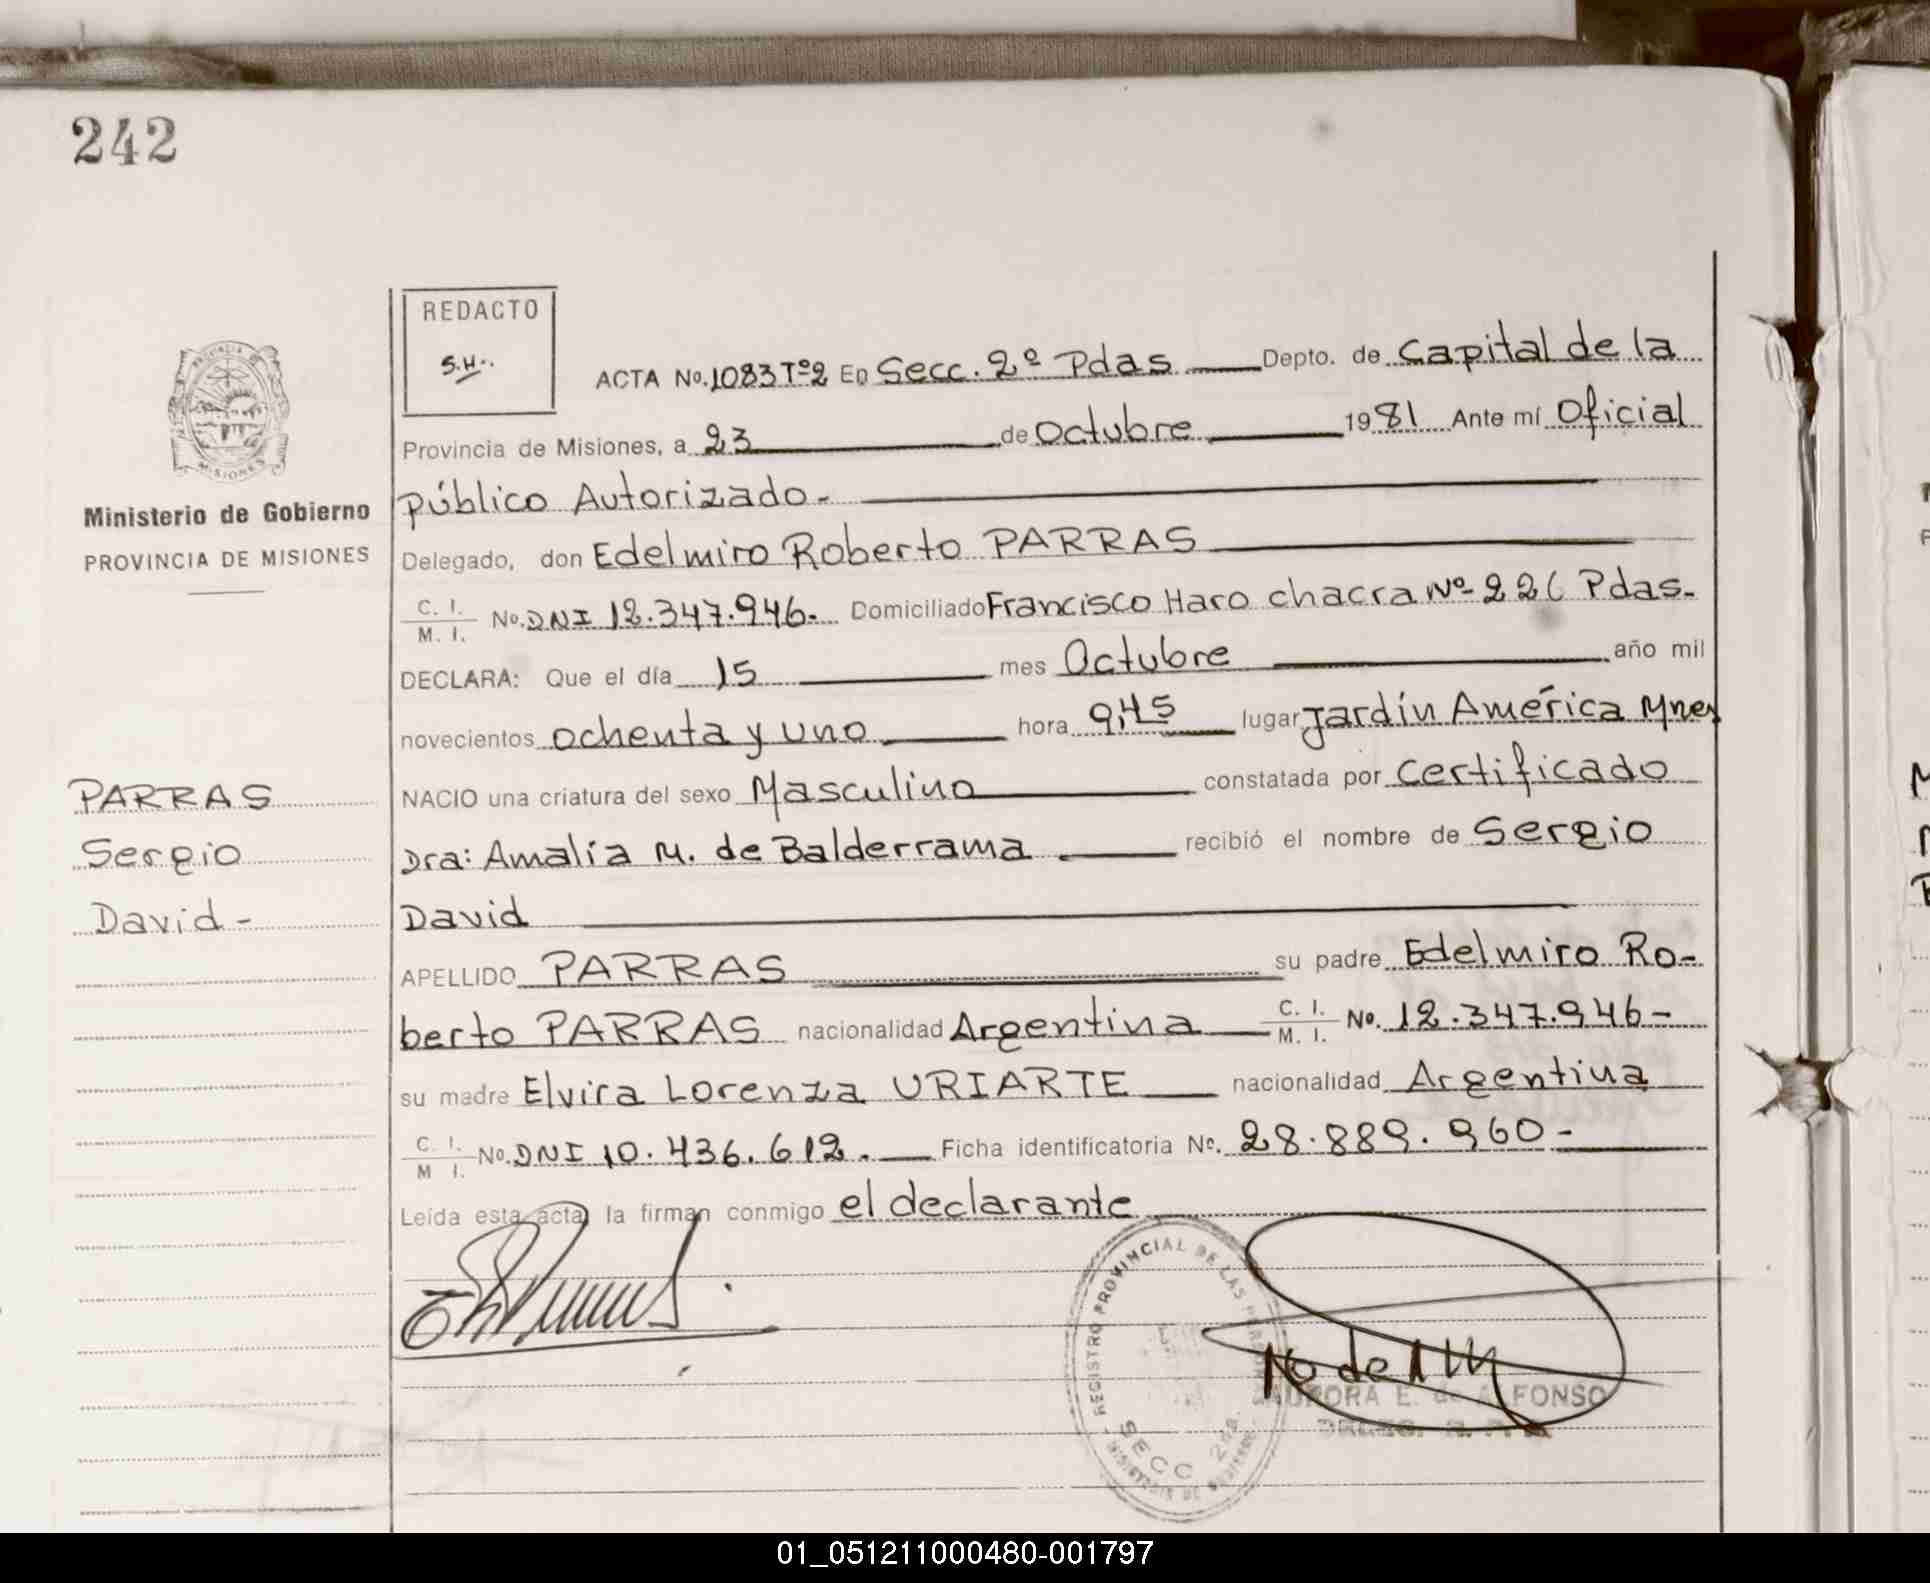 242
REDACTO
S.H..
PROVINCIA DE
MISIONES
Ministerio de Gobierno
PROVINCIA DE MISIONES
ACTA No. 1083 Tº2 En Secc. 2º Pdas Depto. de Capital de la
Provincia de Misiones, a 23 de Octubre 1981 Ante mí Oficial
Público Autorizado.-
Delegado, don Edelmiro Roberto PARRAS
C. I.
M. I. No. DNI 12.347.946.- Domiciliado Francisco Haro chacra Nº 226 Pdas.
DECLARA: Que el día 15 mes Octubre año mil
novecientos ochenta y uno hora 9,45 lugar Jardín América Mnes
NACIO una criatura del sexo Masculino constatada por Certificado
Dra: Amalia M. de Balderrama recibió el nombre de Sergio
David
APELLIDO PARRAS su padre Edelmiro Ro-
berto PARRAS nacionalidad Argentina C. I. M. I. No. 12.347.946-
su madre Elvira Lorenza URIARTE nacionalidad Argentina
C. I.
M I. No. DNI 10.436.612. Ficha identificatoria No. 28.889.960-
Leída esta acta, la firman conmigo el declarante
PARRAS
Sergio
David -
REGISTRO PROVINCIAL DE LAS PERSONAS
SECC 2da.
MINISTERIO DE GOBIERNO
AURORA E. de ALFONSO
01_051211000480-001797